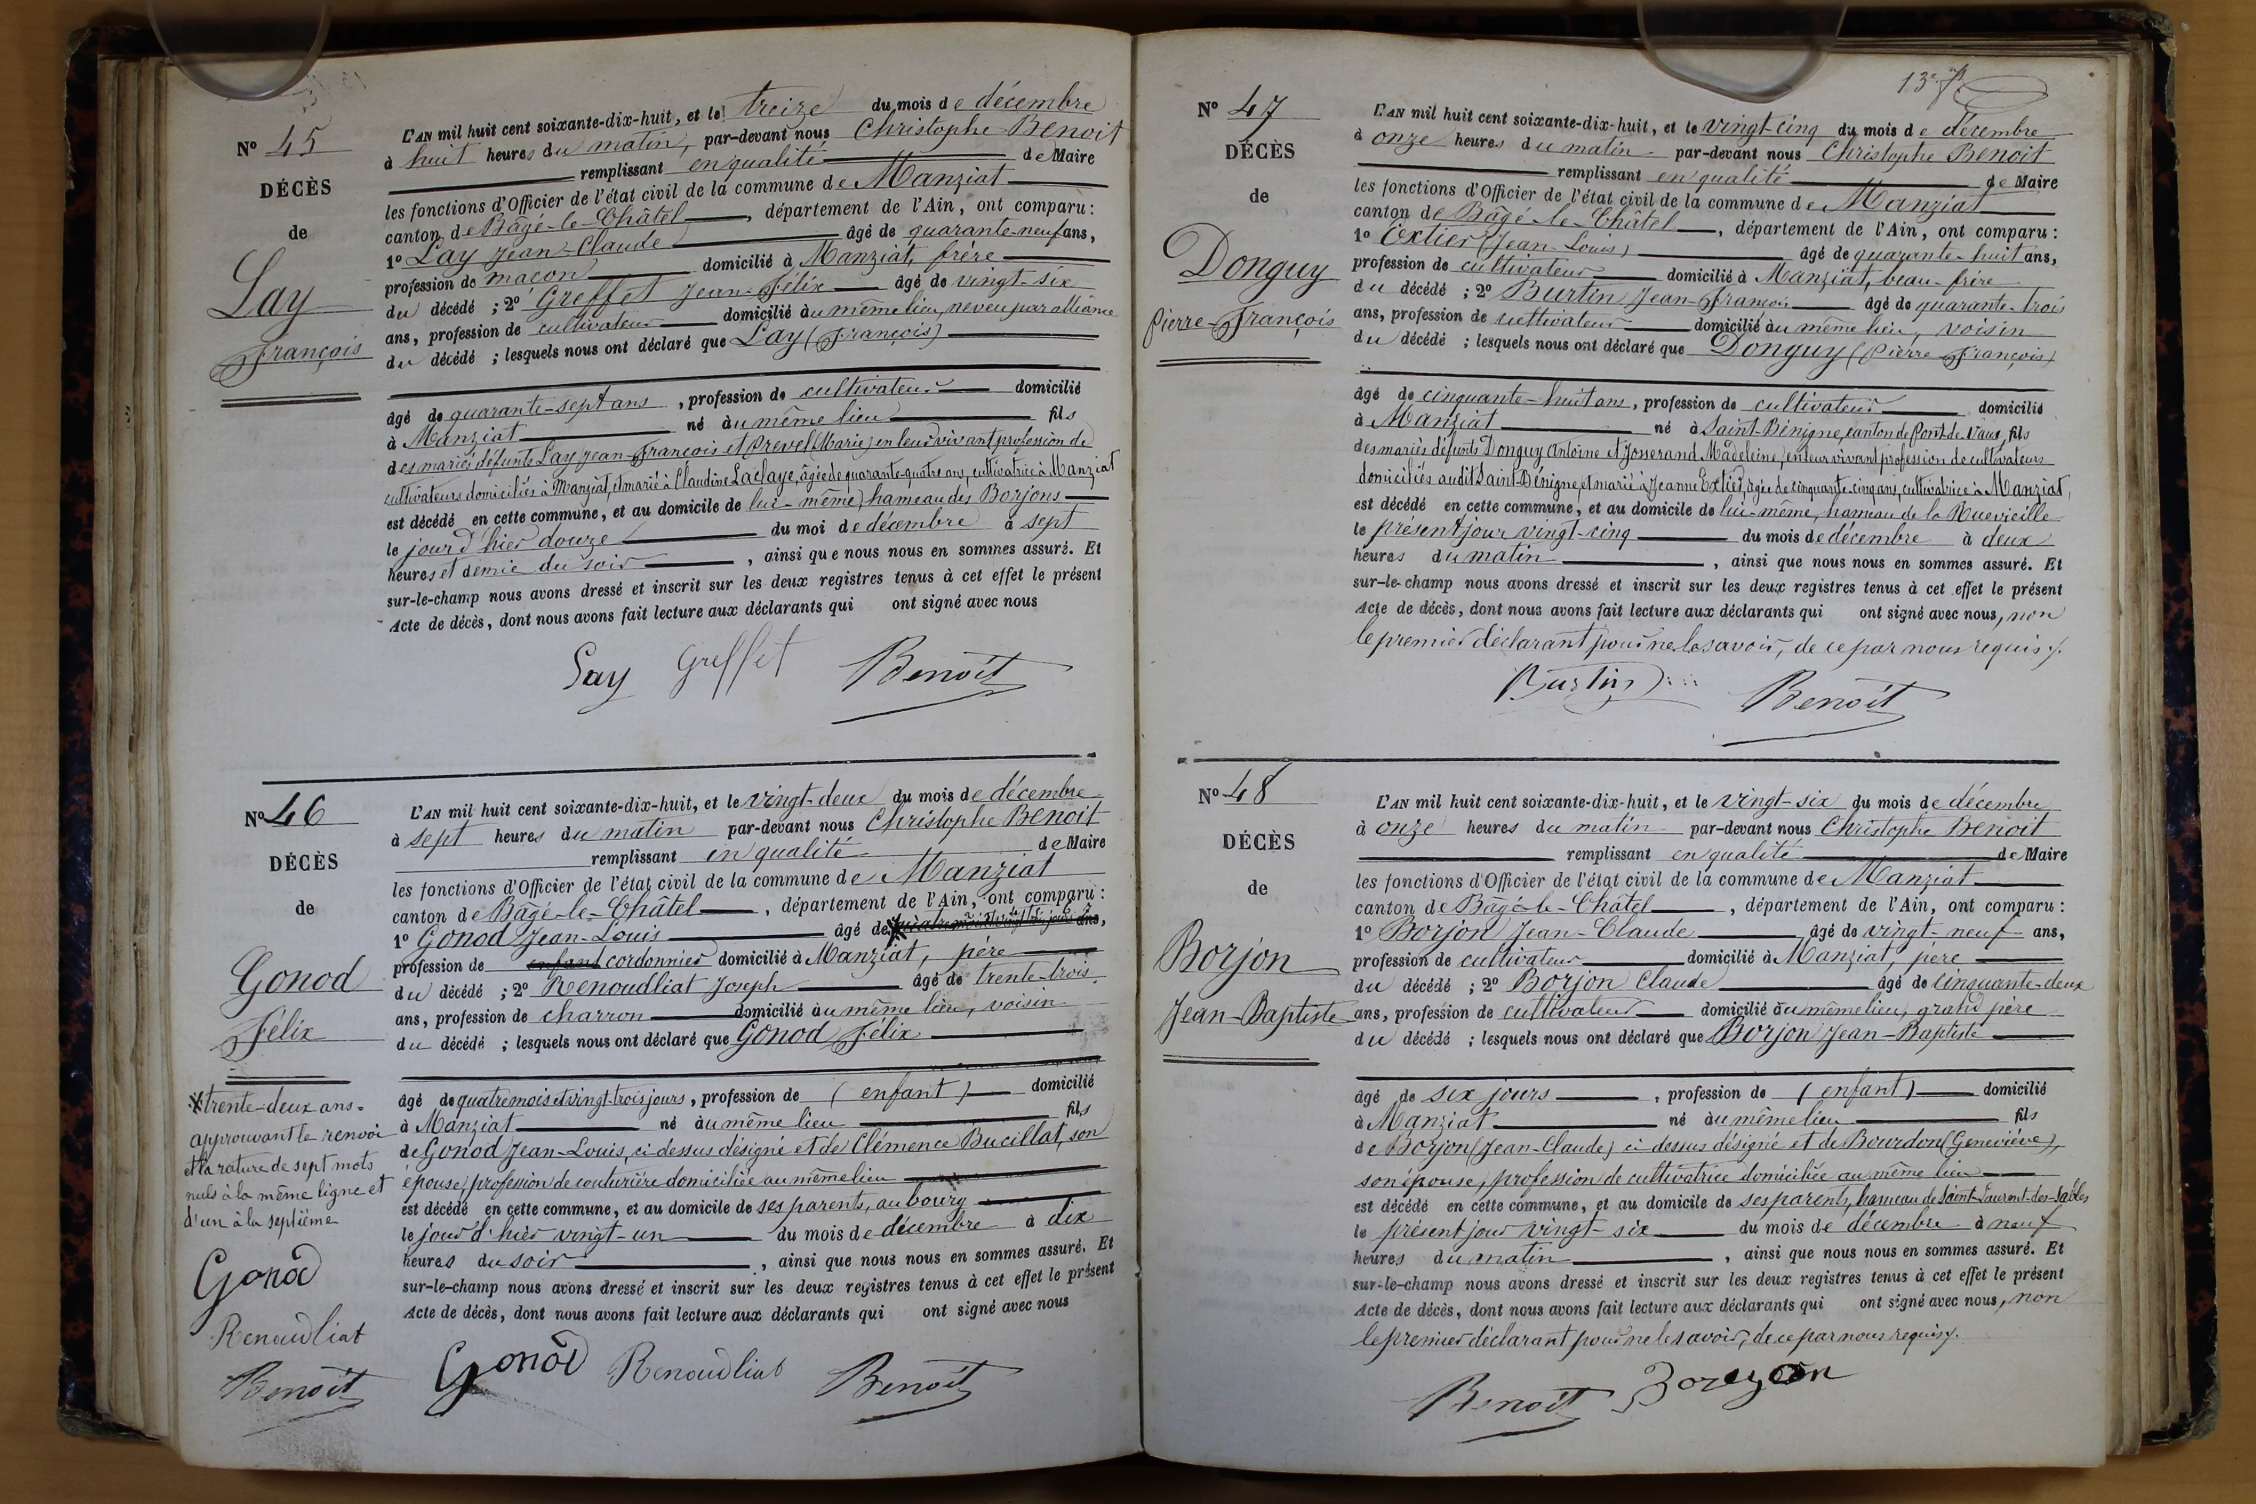 N° 45
DÉCÈS
de
Lay
François
L'AN mil huit cent soixante-dix-huit, et le treize du mois de décembre
à huit heures du matin, par-devant nous Christophe Benoit
remplissant en qualité de Maire
les fonctions d'Officier de l'état civil de la commune de Manziat
canton de Bâgé-le-Châtel, département de l'Ain, ont comparu :
1° Lay Jean-Claude âgé de quarante-neuf ans,
profession de maçon domicilié à Manziat, frère
du décédé ; 2° Greffet Jean-Félix âgé de vingt-six
ans, profession de cultivateur domicilié au même lieu, neveu par alliance
du décédé ; lesquels nous ont déclaré que Lay (François)
âgé de quarante-sept ans, profession de cultivateur domicilié
à Manziat né au même lieu fils
des mariés défunts Lay Jean-François et Prevel (Marie) en leur vivant profession de
cultivateurs domiciliés à Manziat, et marié à Claudine Laclaye, âgée de quarante-quatre ans, cultivatrice à Manziat
est décédé en cette commune, et au domicile de lui-même, hameau des Borjons
le jour d'hier douze du moi de décembre à sept
heures et demie du soir, ainsi que nous nous en sommes assuré. Et
sur-le-champ nous avons dressé et inscrit sur les deux registres tenus à cet effet le présent
Acte de décès, dont nous avons fait lecture aux déclarants qui ont signé avec nous
Lay Greffet Benoit
N° 46
DÉCÈS
de
Gonod
Félix
L'AN mil huit cent soixante-dix-huit, et le vingt-deux du mois de décembre
à sept heures du matin par-devant nous Christophe Benoit
remplissant en qualité de Maire
les fonctions d'Officier de l'état civil de la commune de Manziat
canton de Bâgé-le-Châtel, département de l'Ain, ont comparu :
1° Gonod Jean-Louis âgé de quatre mois et vingt-trois jours ans,
profession de enfant cordonnier domicilié à Manziat, père
du décédé ; 2° Renoudliat Joseph âgé de trente-trois
ans, profession de charron domicilié au même lieu, voisin
du décédé ; lesquels nous ont déclaré que Gonod Félix
âgé de quatre mois et vingt-trois jours, profession de (enfant) domicilié
à Manziat né au même lieu fils
de Gonod Jean-Louis, ci-dessus désigné et de Clémence Bucillat, son
épouse, profession de couturière domiciliée au même lieu
est décédé en cette commune, et au domicile de ses parents, au bourg
le jour d'hier vingt-un du mois de décembre à dix
heures du soir, ainsi que nous nous en sommes assuré. Et
sur-le-champ nous avons dressé et inscrit sur les deux registres tenus à cet effet le présent
Acte de décès, dont nous avons fait lecture aux déclarants qui ont signé avec nous
Gonod Renoudliat Benoit
* trente-deux ans.
approuvant le renvoi
et la rature de sept mots
nuls à la même ligne et
d'un à la septième
Gonod
Renoudliat
Benoit
13e f
N° 47
DÉCÈS
de
Donguy
Pierre-François
L'AN mil huit cent soixante-dix-huit, et le vingt-cinq du mois de décembre
à onze heures du matin par-devant nous Christophe Benoit
remplissant en qualité de Maire
les fonctions d'Officier de l'état civil de la commune de Manziat
canton de Bâgé-le-Châtel, département de l'Ain, ont comparu :
1° Extier (Jean-Louis) âgé de quarante-huit ans,
profession de cultivateur domicilié à Manziat, beau-frère
du décédé ; 2° Burtin Jean-François âgé de quarante-trois
ans, profession de cultivateur domicilié au même lieu, voisin
du décédé ; lesquels nous ont déclaré que Donguy (Pierre-François)
âgé de cinquante-huit ans, profession de cultivateur domicilié
à Manziat né à Saint-Bénigne, canton de Pont-de-Vaux, fils
des mariés défunts Donguy Antoine et Josserand Madeleine, en leur vivant profession de cultivateurs
domiciliés audit Saint-Bénigne, et marié à Jeanne Extier, âgée de cinquante-cinq ans, cultivatrice à Manziat,
est décédé en cette commune, et au domicile de lui-même, hameau de la Ruevieille
le présent jour vingt-cinq du mois de décembre à deux
heures du matin, ainsi que nous nous en sommes assuré. Et
sur-le-champ nous avons dressé et inscrit sur les deux registres tenus à cet effet le présent
Acte de décès, dont nous avons fait lecture aux déclarants qui ont signé avec nous, non
le premier déclarant pour ne le savoir, de ce par nous requis.
Burtin Benoit
N° 48
DÉCÈS
de
Borjon
Jean-Baptiste
L'AN mil huit cent soixante-dix-huit, et le vingt-six du mois de décembre
à onze heures du matin par-devant nous Christophe Benoit
remplissant en qualité de Maire
les fonctions d'Officier de l'état civil de la commune de Manziat
canton de Bâgé-le-Châtel, département de l'Ain, ont comparu :
1° Borjon Jean-Claude âgé de vingt-neuf ans,
profession de cultivateur domicilié à Manziat, père
du décédé ; 2° Borjon Claude âgé de cinquante-deux
ans, profession de cultivateur domicilié au même lieu, grand père
du décédé ; lesquels nous ont déclaré que Borjon Jean-Baptiste
âgé de six jours, profession de (enfant) domicilié
à Manziat né au même lieu fils
de Borjon (Jean-Claude) ci-dessus désigné et de Bourdon (Geneviève),
son épouse, profession de cultivatrice domiciliée au même lieu
est décédé en cette commune, et au domicile de ses parents, hameau de Saint-Laurent-des-Sables
le présent jour vingt-six du mois de décembre à neuf
heures du matin, ainsi que nous nous en sommes assuré. Et
sur-le-champ nous avons dressé et inscrit sur les deux registres tenus à cet effet le présent
Acte de décès, dont nous avons fait lecture aux déclarants qui ont signé avec nous, non
le premier déclarant pour ne le savoir, de ce par nous requis.
Benoit Borgon